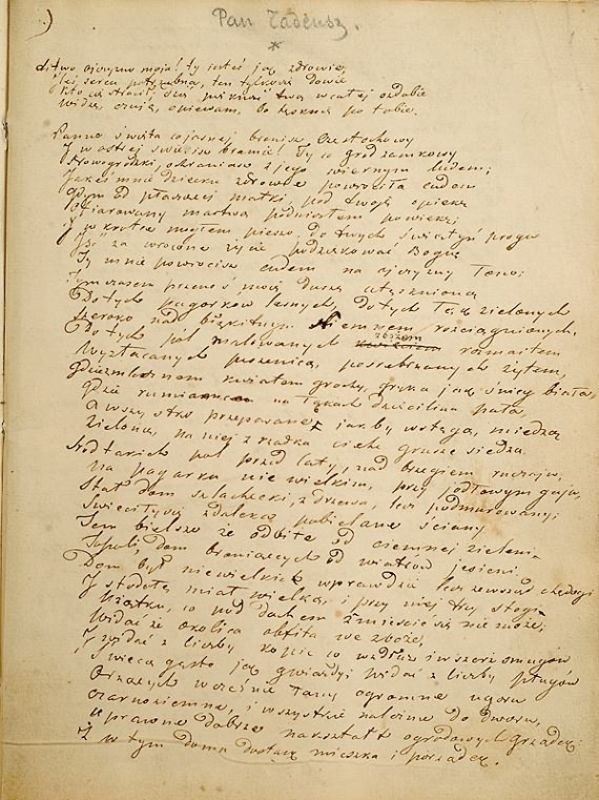 Pan Tadeusz.
*
Litwo ojczyzno moja! ty jesteś jak zdrowie,
Ileś sercu potrzebna, ten tylko się dowie
Kto cię stracił, dziś piękność twą w całej ozdobie
Widzę, czuję, opiewam, bo tęsknię po tobie.
Panno święta co jasnej bronisz Częstochowy
I w ostrej świecisz bramie! Ty co gród zamkowy
Nowogródzki, ochraniasz z jego wiernym ludem;
Jakeś mnie dziecko zdrowie powróciła cudem
Gdym od płaczącej matki, pod twoją opiekę
Ofiarowany martwą podniosłem powiekę;
I zaraz mogłem pieszo, do twych świątyń progu
Iść za wrócone życie podziękować Bogu
Ty mnie powrócisz cudem na ojczyzny łono:
Tymczasem przenoś moją duszę utęsknioną
Do tych pagórków leśnych, do tych łąk zielonych
Szeroko nad błękitnym Niemnem rozciągnionych,
Do tych pól malowanych zbożem rozmaitem
Wyzłacanych pszenicą, posrebrzanych żytem,
Gdzie bursztynowy
Gdzie rumiancem na łąkach dzięcielina pała,
A wszystko przepasane jakby wstęgą, miedzą
Zieloną, na niej z rzadka ciche grusze siedzą.
Śród takich pól przed laty, nad brzegiem ruczaju,
Na pagórku niewielkim, przy jodłowym gaju,
Stał dom szlachecki, z drzewa, lecz podmurowany;
Świeciły się z daleka pobielane ściany
Tem bielsze że odbite od ciemnej zieleni
Topoli, dom broniących od wiatrów jesieni.
Dom był niewielki wprawdzie lecz zewsząd chędogi
I stodołę miał wielką, i przy niej trzy stogi
Użątku, co pod dachem zmieścić się nie może;
Widać że okolica obfita we zboże,
I widać z liczby kopic co wzdłuż i wszerz smugów
Świecą gęsto jak gwiazdy, widać z liczby pługów
Orzących wcześnie łany ogromne ugoru
Czarnoziemne, i wszystkie należne do dworu,
Uprawne dobrze nakształt ogrodowych grządek:
Ż w tym domu dostatek mieszka i porządek.